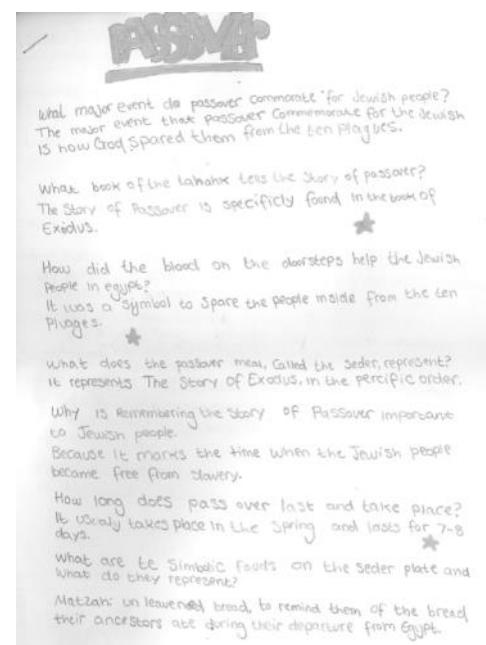 PASSOVER
What major event do passover commorate for Jewish people?
The major event that Passover Commemorate for the Jewish
is how God spared them from the ten plagues.
What book of the tahahx tells the Story of passover?
The Story of Passover is specificly found in the book of
Exodus.
How did the blood on the doorsteps help the Jewish
People in egypt?
It was a symbol to spare the people inside from the ten
Pluages.
What does the passover meal, Called the seder, represent?
it represents The Story of Exodus, in the percific order.
Why is Remembering the Story of Passover important
to Jewish people.
Because it marks the time when the Jewish people
became free from slavery.
How long does pass over last and take place?
It usualy takes place in the Spring and lasts for 7-8
days.
What are te Simbolic foods on the seder plate and
What do they represent?
Matzah: un leavened bread, to remind them of the bread
their ancestors ate during their departure from Egypt.